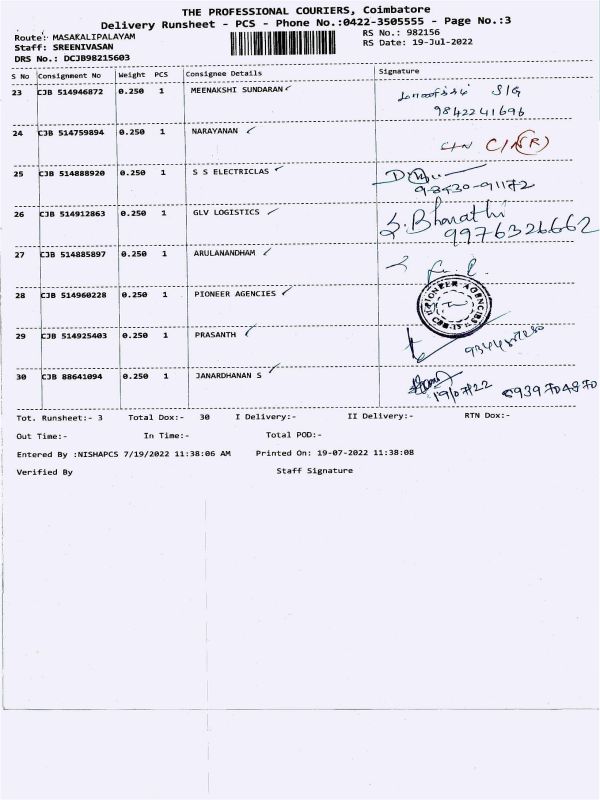 THE PROFESSIONAL COURIERS, Coimbatore
Delivery Runsheet - PCS - Phone No.:0422-3505555 - Page No.:3
Route: MASAKALIPALAYAM RS No.: 982156
Staff: SREENIVASAN RS Date: 19-Jul-2022
DRS No.: DCJB98215603
S No Consignment No Weight PCS Consignee Details Signature
23 CJB 514946872 0.250 1 MEENAKSHI SUNDARAN
9842241696
24 CJB 514759894 0.250 1 NARAYANAN
25 CJB 514888920 0.250 1 S S ELECTRICLAS
26 CJB 514912863 0.250 1 GLV LOGISTICS S. Bharathi
9976326662
27 CJB 514885897 0.250 1 ARULANANDHAM
28 CJB 514960228 0.250 1 PIONEER AGENCIES PIONEER AGENCIES
29 CJB 514925403 0.250 1 PRASANTH
30 CJB 88641094 0.250 1 JANARDHANAN S
19/07/22
Tot. Runsheet:- 3 Total Dox:- 30 I Delivery:- II Delivery:- RTN Dox:-
Out Time:- In Time:- Total POD:-
Entered By :NISHAPCS 7/19/2022 11:38:06 AM Printed On: 19-07-2022 11:38:08
Verified By Staff Signature